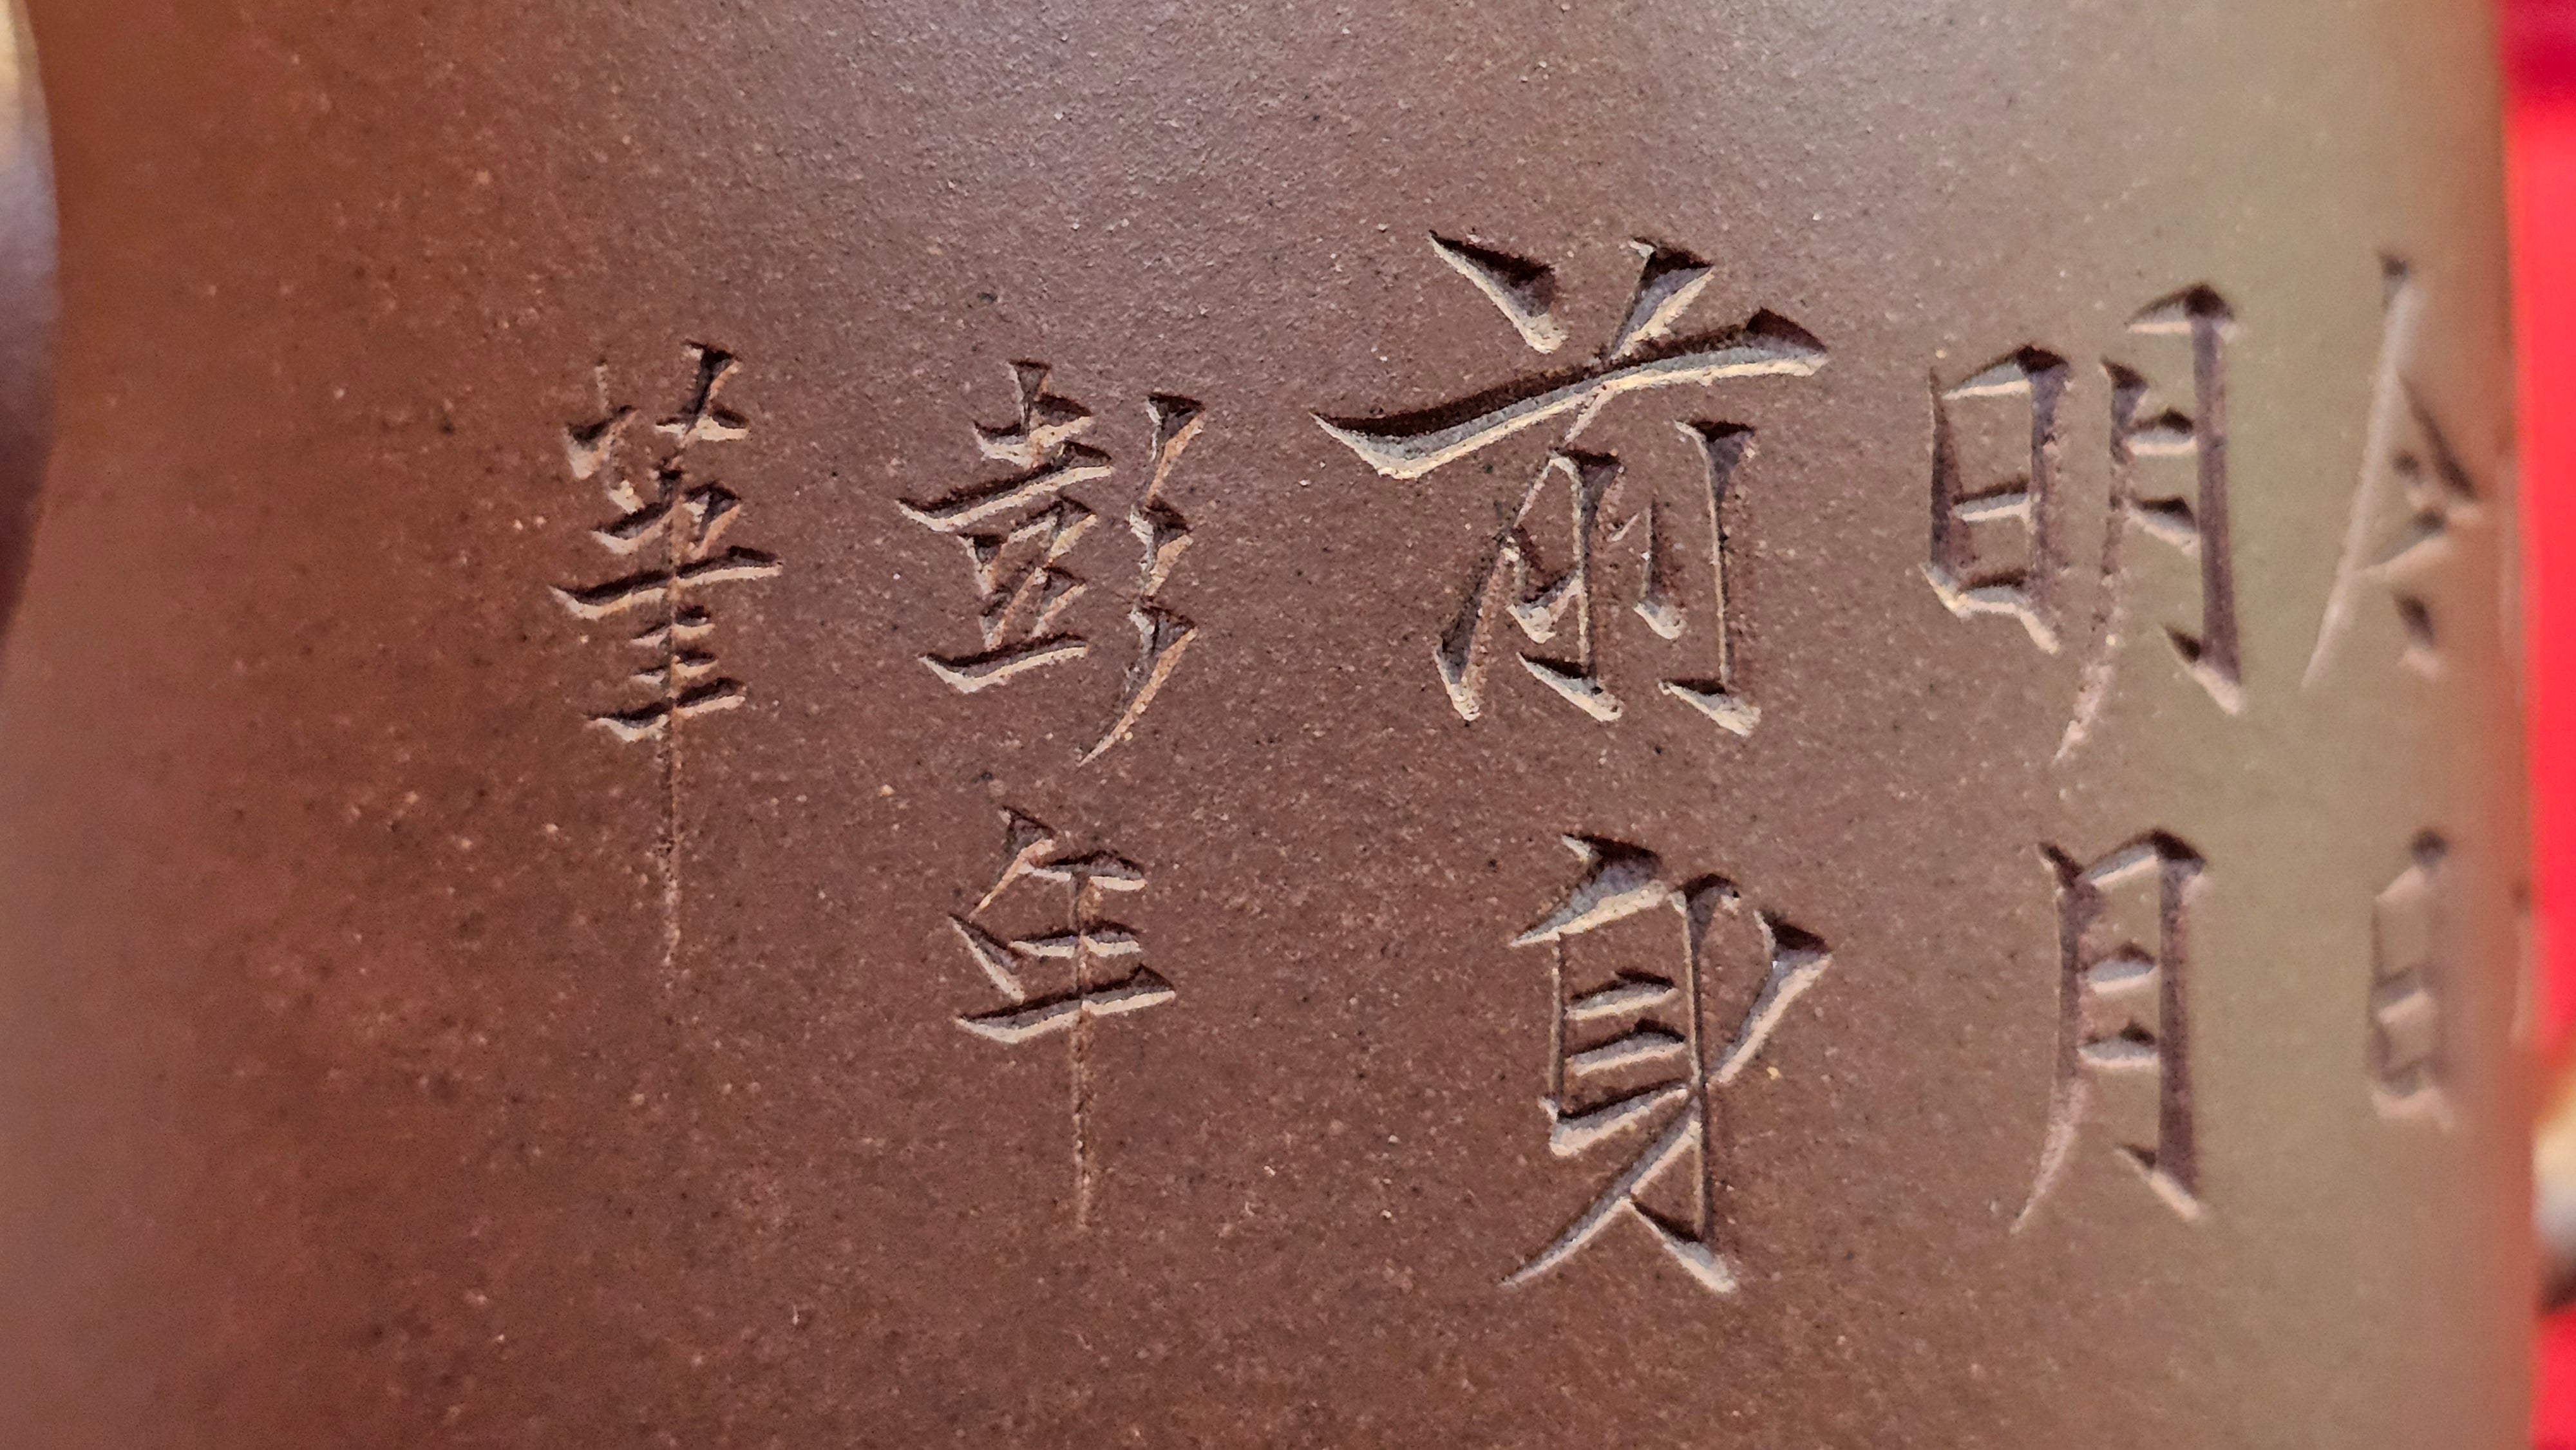 今日
明月
前身
彭年
筆